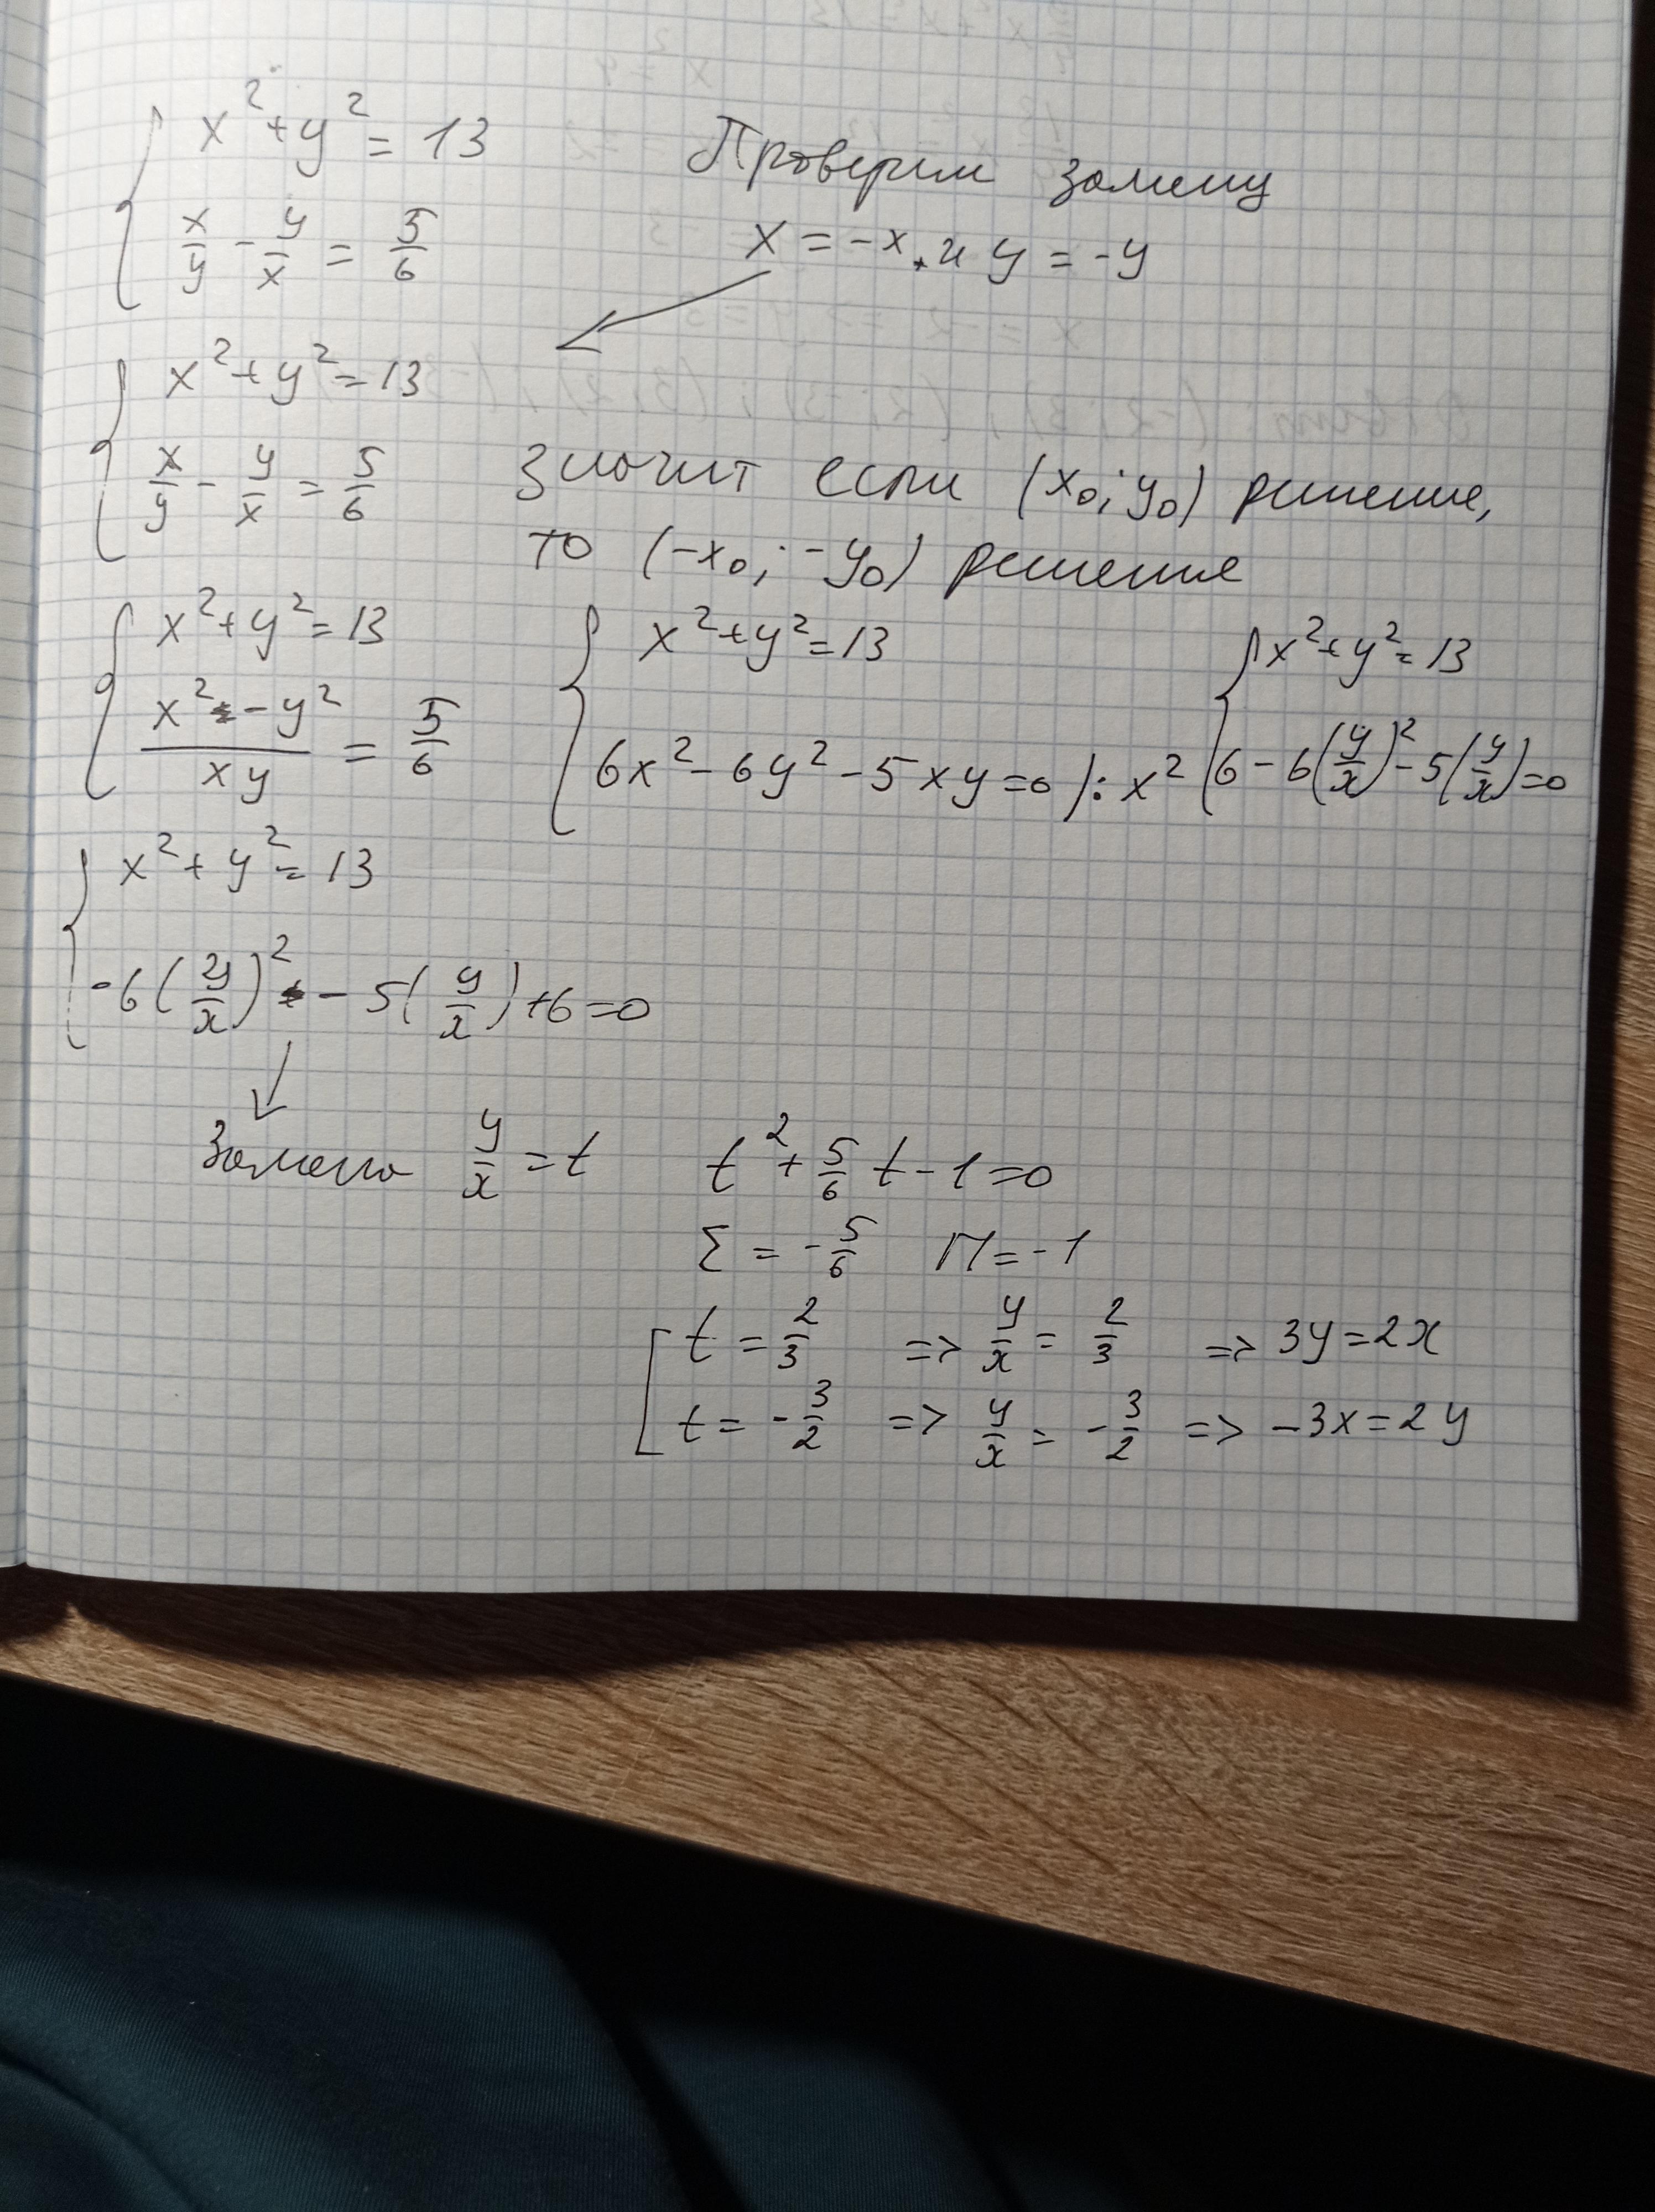 x² + y² = 13
x/y - y/x = 5/6
Проверим замену
x = -x и y = -y
x² + y² = 13
x/y - y/x = 5/6
Значит если (x₀; y₀) решение,
то (-x₀; -y₀) решение
x² + y² = 13
(x² - y²)/(xy) = 5/6
x² + y² = 13
6x² - 6y² - 5xy = 0 | : x²
x² + y² = 13
6 - 6(y/x)² - 5(y/x) = 0
x² + y² = 13
-6(y/x)² - 5(y/x) + 6 = 0
Замена y/x = t
t² + 5/6 t - 1 = 0
Σ = -5/6 П = -1
t = 2/3 => y/x = 2/3 => 3y = 2x
t = -3/2 => y/x = -3/2 => -3x = 2y